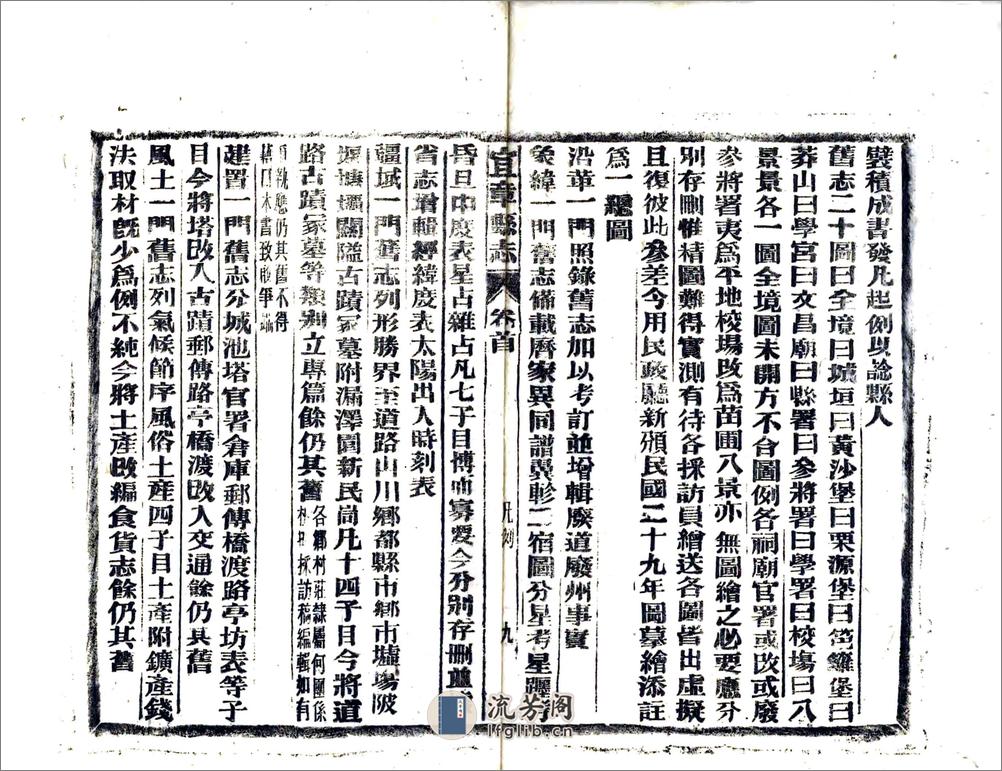 襞積成書發凡起例以諗縣人
舊志二十圖曰全境曰城垣曰黃沙堡曰栗源堡曰笆籬堡曰
莽山曰學宮曰文昌廟曰縣署曰參將署曰學署曰校塲曰八
景景各一圖全境圖未開方不合圖例各祠廟官署或改或廢
參將署夷爲平地校塲改爲苗圃八景亦無圖繪之必要應分
別存刪惟精圖難得實測有待各採訪員繪送各圖皆出虛擬
且復彼此參差今用民政廳新頒民國二十九年圖摹繪添註
爲一總圖
沿革一門照錄舊志加以考訂並增輯廢道廢州事實
象緯一門舊志備載曆家異同譜異軫二宿圖分星考星躔考
宜章縣志 卷首 凡例 九
昏旦中度表星占雜占凡七子目博而寡要今分別存刪並
省志增輯經緯度表太陽出入時刻表
疆域一門舊志列形勝界至道路山川鄉都縣市鄉市墟塲陂
塘關隘古蹟冢墓附漏澤園新民尚凡十四子目今將道
路古蹟冢墓等類別立專篇餘仍其舊各鄉村莊隸屬何團係
採訪稿編輯如有
執應仍其舊不得
本書致啟爭訟
建置一門舊志分城池塔官署倉庫郵傳橋渡路亭坊表等子
目今將塔改入古蹟郵傳路亭橋渡改入交通餘仍其舊
風土一門舊志列氣候節序風俗土產四子目土產附鑛產錢
法取材旣少爲例不純今將土產改編食貨志餘仍其舊
流芳阁
lfglib.cn